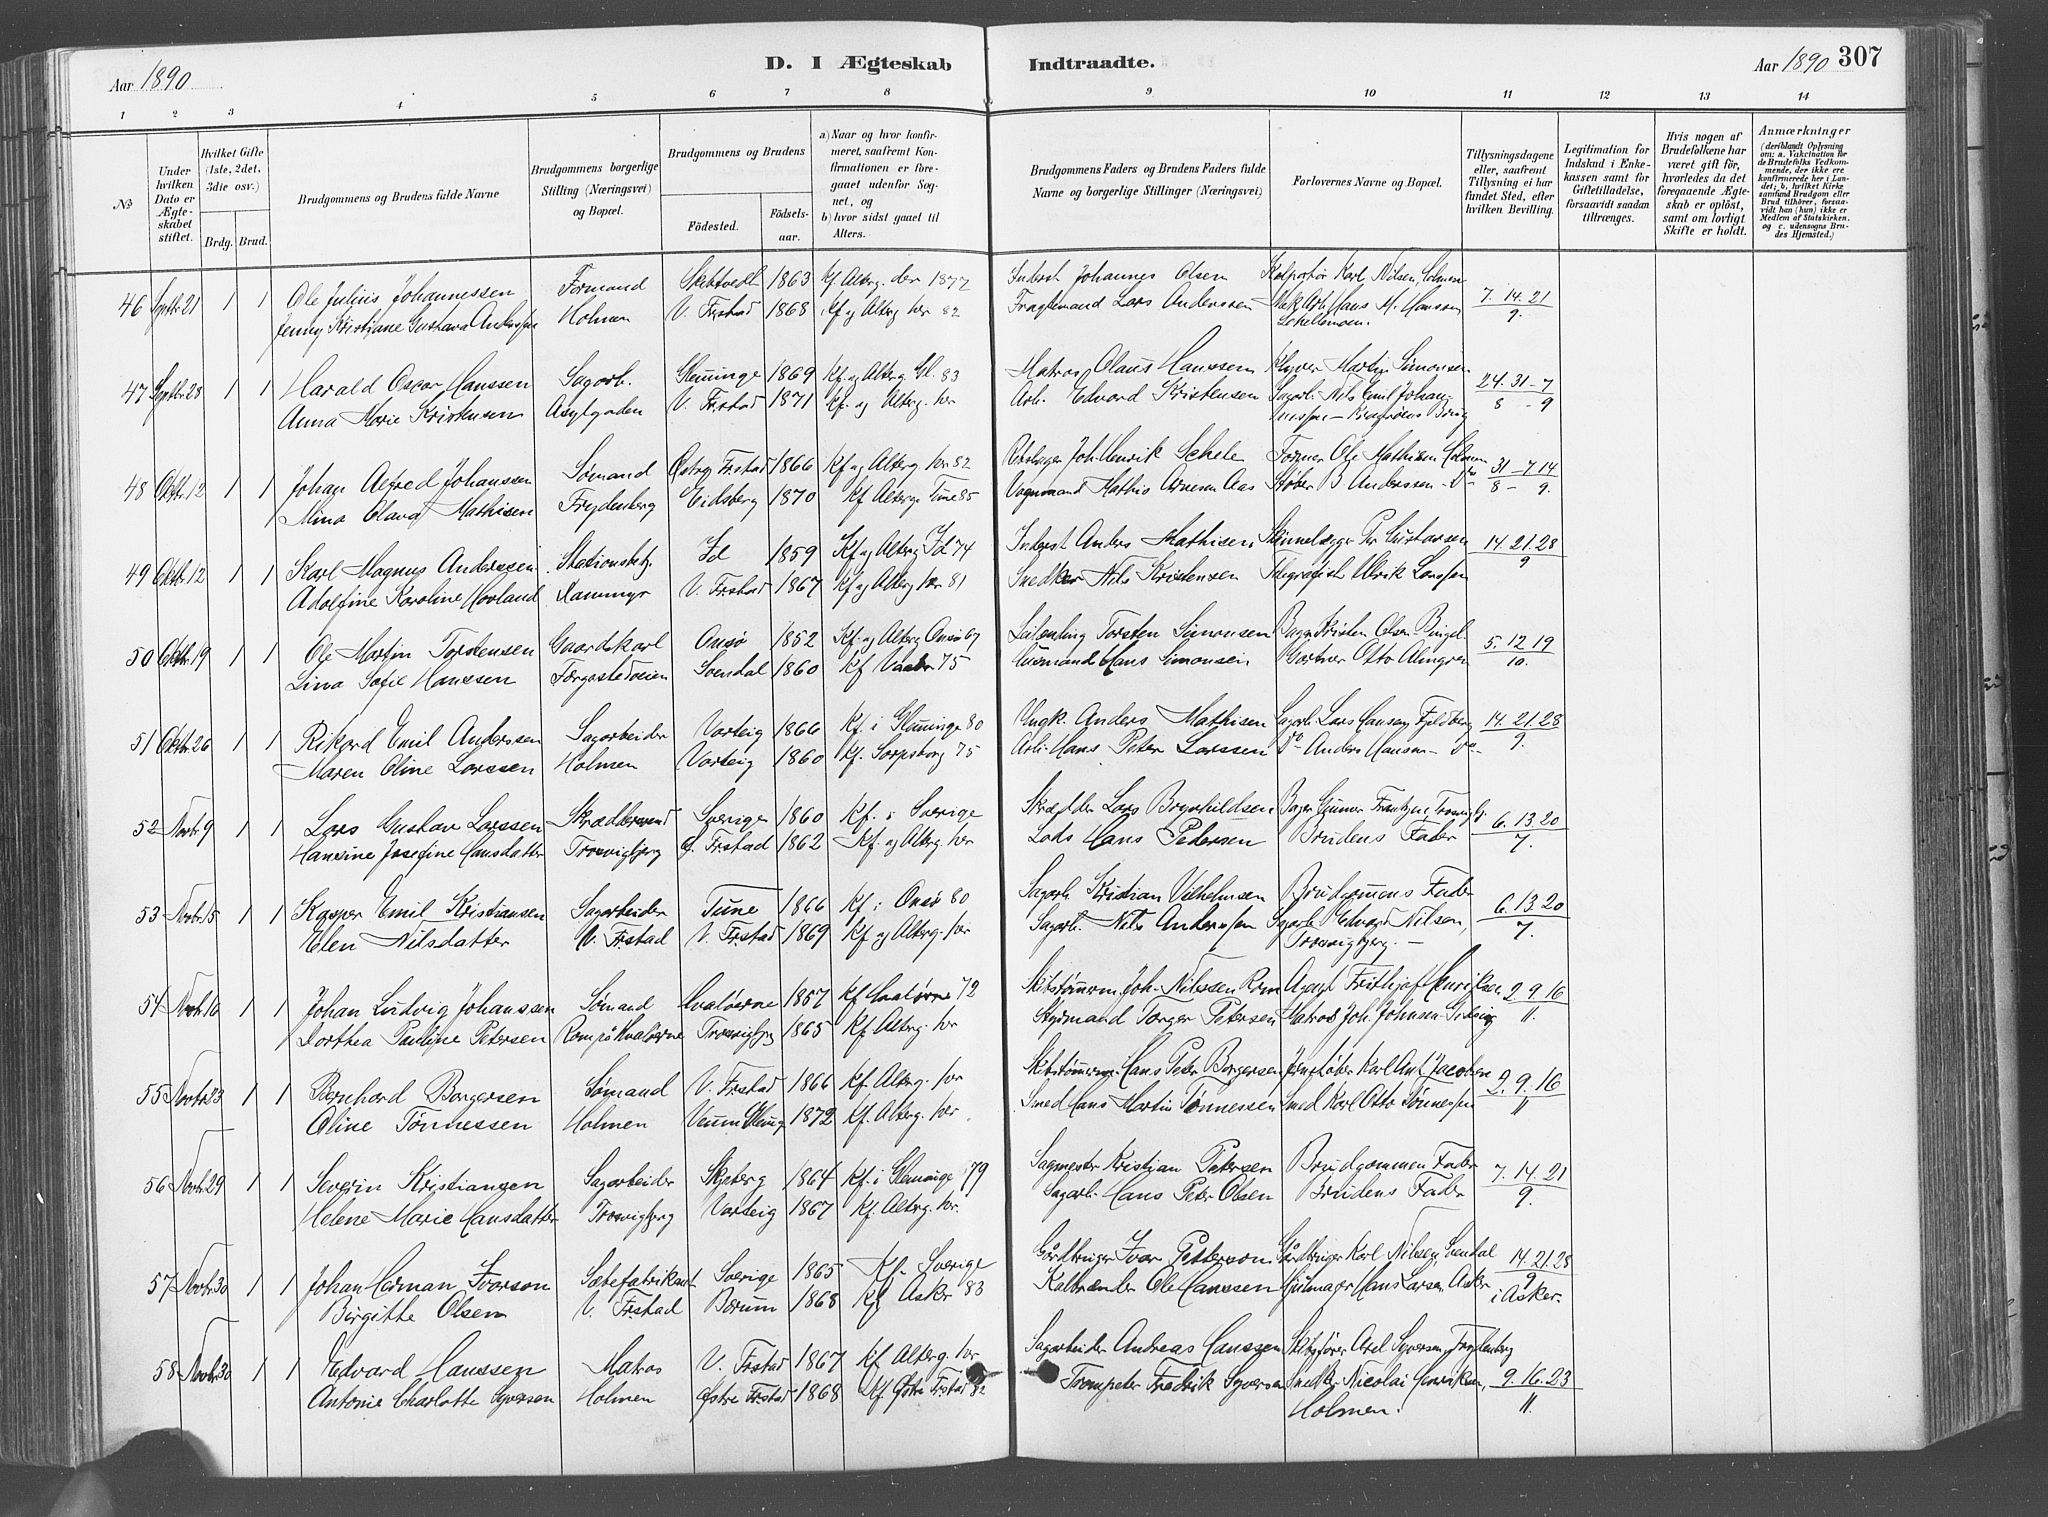 Aar 1890
D. I Ægteskab Indtraadte.
Aar 1890 307
1 2 3 4 5 6 7 8 9 10 11 12 13 14
No
Under hvilken Dato er Ægteskabet stiftet.
Hvilket Gifte (1ste, 2det, 3die osv.)
Brdg. Brud.
Brudgommens og Brudens fulde Navne
Brudgommens borgerlige Stilling (Næringsvei) og Bopæl.
Brudgommens og Brudens
Fødested.
Fødselsaar.
a) Naar og hvor konfirmeret, saafremt Konfirmationen er foregaaet udenfor Sognet, og
b) hvor sidst gaaet til Alters.
Brudgommens Faders og Brudens Faders fulde Navne og borgerlige Stillinger (Næringsvei)
Forlovernes Navne og Bopæl.
Tillysningsdagene eller, saafremt Tillysning ei har fundet Sted, efter hvilken Bevilling.
Legitimation for Indskud i Enkekassen samt for Giftetilladelse, forsaavidt saadan tiltrænges.
Hvis nogen af Brudefolkene har været gift før, hvorledes da det foregaaende Ægteskab er opløst, samt om lovligt Skifte er holdt.
Anmærkninger (deriblandt Oplysning om: a. Vakcination for de Brudefolks Vedkommende, der ikke ere konfirmerede her i Landet; b. hvilket Kirkesamfund Brudgom eller Brud tilhører, forsaavidt han (hun) ikke er Medlem af Statskirken. og c. udensogns Brudes Hjemsted.)
46 Septbr 21 1 1 Ole Julius Johannessen Formand Skibtvedt 1863 Kf. Altbrg. der 1877 Inderst Johannes Olsen Kolportør Karl Nilsen, Holmen 7. 14. 21
Jenny Kristiane Gustava Anderssen Holmen V. Frstad 1868 Kf og Altbrg her 82 Fragtemand Lars Anderssen Hans M. Hanssen 9.
47 Septbr 28 1 1 Harald Oscar Hanssen Sagarb. Glemminge 1869 Kf. og Altbrg. Gl. 83 Matros Claus Hanssen Martin Simonsen 24. 31 - 7
Anna Marie Kristensen Asylgaden V. Frstad 1871 Kf. og Altbrg. her Arb. Edvard Kristensen Sagarb. Nils Emil Johannessen 8 - 9
48 Oktbr 12 1 1 Johan Alfred Johanssen Sømand Østre Frstad 1866 Kf. og Altbrg. her 82 Joh. Henrik Schele Former Ole Mathisen Holmen 31 - 7. 14
Mina Olava Mathisen Frydenberg Eidsberg 1870 Kf Altbrg. Tune 85 Vognmand Mathis Arnesen Aas Støber B. Anderssen Do 8 - 9.
49 Oktbr 12 1 1 Karl Magnus Anderssen Stationsbetj. Id 1859 Kf og Altbrg Id 74 Inderst Anders Mathisen Skinnelægger Per Gustavsen 14. 21. 28
Adolfine Karoline Hovland V. Frstad 1867 Kf og Altbrg her 81 Snedker Nils Kristensen Telegrafist Ulrik Larssen 9
50 Oktbr 19 1 1 Ole Martin Torstensen Gaardskarl Onsø 1852 Kf. og Altbrg Onsø 67 Torsten Simonsen Kristen Olsen 5. 12. 19
Lina Sofie Hanssen Færgestedveien Svendal 1860 Kf Vaaler 75 Husmand Hans Simonsen Gartner Otto Almgren 10.
51 Oktbr 26 1 1 Rikard Emil Anderssen Sagarbeider Varteig 1866 Kf. i Glemminge 80 Ungk. Anders Mathisen Sagarb. Lars Hansen, Fjeldberg 14. 21. 28
Maren Oline Larssen Holmen Varteig 1860 Kf. Sarpsborg 75 Arb. Hans Peter Larssen Do Anders Hansen - Do 9.
52 Novbr 9 1 1 Lars Gustav Larssen Skræddersvend Sverige 1860 Kf. i Sverige Skrædder Lars Brynhildsen Bager Gunnar Frantzen, Trosvigbj. 6. 13. 20
Hansine Josefine Hansdatter Trosvigbjerg V. Frstad 1862 Kf. og Altbrg. her Lods Hans Petersen Brudens Fader 7.
53 Novbr 15 1 1 Kasper Emil Kristiansen Sagarbeider Tune 1866 Kf. i Onsø 80 Sagarb. Kristian Vilhelmsen Brudgommens Fader 6. 13. 20
Elen Nilsdatter V. Frstad V. Frstad 1869 Kf og Altbrg. her Sagarb. Nils Anderssen Sagarb. Edvard Nilsen, Trosvigbjerg. 7.
54 Novbr 16 1 1 Johan Ludvig Johanssen Sømand Hvaløerne 1857 Kf Hvaløerne 72 Skibstømmerm. Joh. Nilssen Rom Agent Frithjof Henriksen 2. 9. 16
Dorthea Pauline Petersen Hvaløerne Trosvigbjerg 1865 Kf. Altbrg. her Styrmand Torger Petersen Matros Joh. Johnsen 11.
55 Novbr 23 1 1 Bernhard Borgersen Sømand V. Frstad 1866 Kf. Altbrg. her Skibstømmerm. Hans Peter Borgersen Jernstøber Karl Ant. Jacobsen 2. 9. 16
Oline Tønnessen Holmen Veum Glemg 1872 Kf. Altbrg. her Smed Hans Martin Tønnessen Smed Karl Otto Tønnessen 11
56 Novbr 29 1 1 Severin Kristiansen Sagarbeider Skjeberg 1864 Kf. i Glemminge 79 Sagmester Kristian Petersen Brudgommens Fader 7. 14. 21
Helene Marie Hansdatter Trosvigbjerg Varteig 1867 Kf. Altbrg. her. Sagarb. Hans Peter Olsen Brudens Fader 9.
57 Novbr 30 1 1 Johan Herman Ivarson Sæbefabrikant Sverige 1865 Kf. Sverige Gårdbruger Ivar Petterson Gårdbruger Karl Nilsen, Svendal 14. 21. 28
Birgitte Olsen V. Frstad Bærum 1868 Kf Asker 83 Kalbrænder Ole Hanssen Hans Larsen, Asker 9 i Asker.
58 Novbr 30 1 1 Edvard Hanssen Matros V. Frstad 1867 Kf Altbrg. her Sagarbeider Andreas Hanssen Skibsfører Axel Syversen, Frydenberg 9. 16. 23
Antonie Charlotte Syversen Holmen Østre Frstad 1868 Kf Østre Frstad 82 Trompeter Fredrik Syversen Nicolai Henriksen, Holmen. 11.